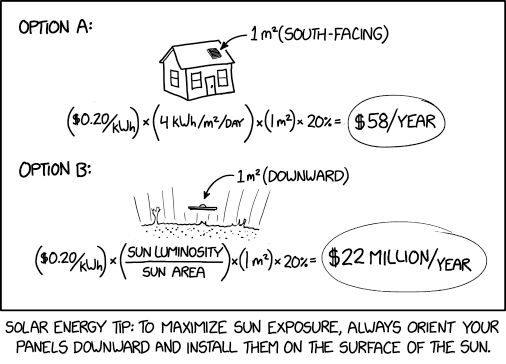 OPTION A:
1m² (SOUTH-FACING)
($0.20/kWh) × (4 kWh/m²/DAY) × (1m²) × 20% = $58/YEAR
OPTION B:
1m² (DOWNWARD)
($0.20/kWh) × (SUN LUMINOSITY
SUN AREA) × (1m²) × 20% = $22 MILLION/YEAR
SOLAR ENERGY TIP: TO MAXIMIZE SUN EXPOSURE, ALWAYS ORIENT YOUR
PANELS DOWNWARD AND INSTALL THEM ON THE SURFACE OF THE SUN.